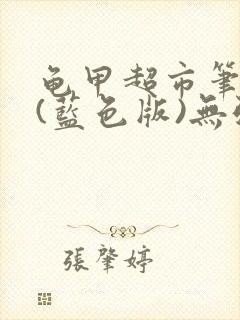 龟甲超市筆
(藍色版)無
張肇婷